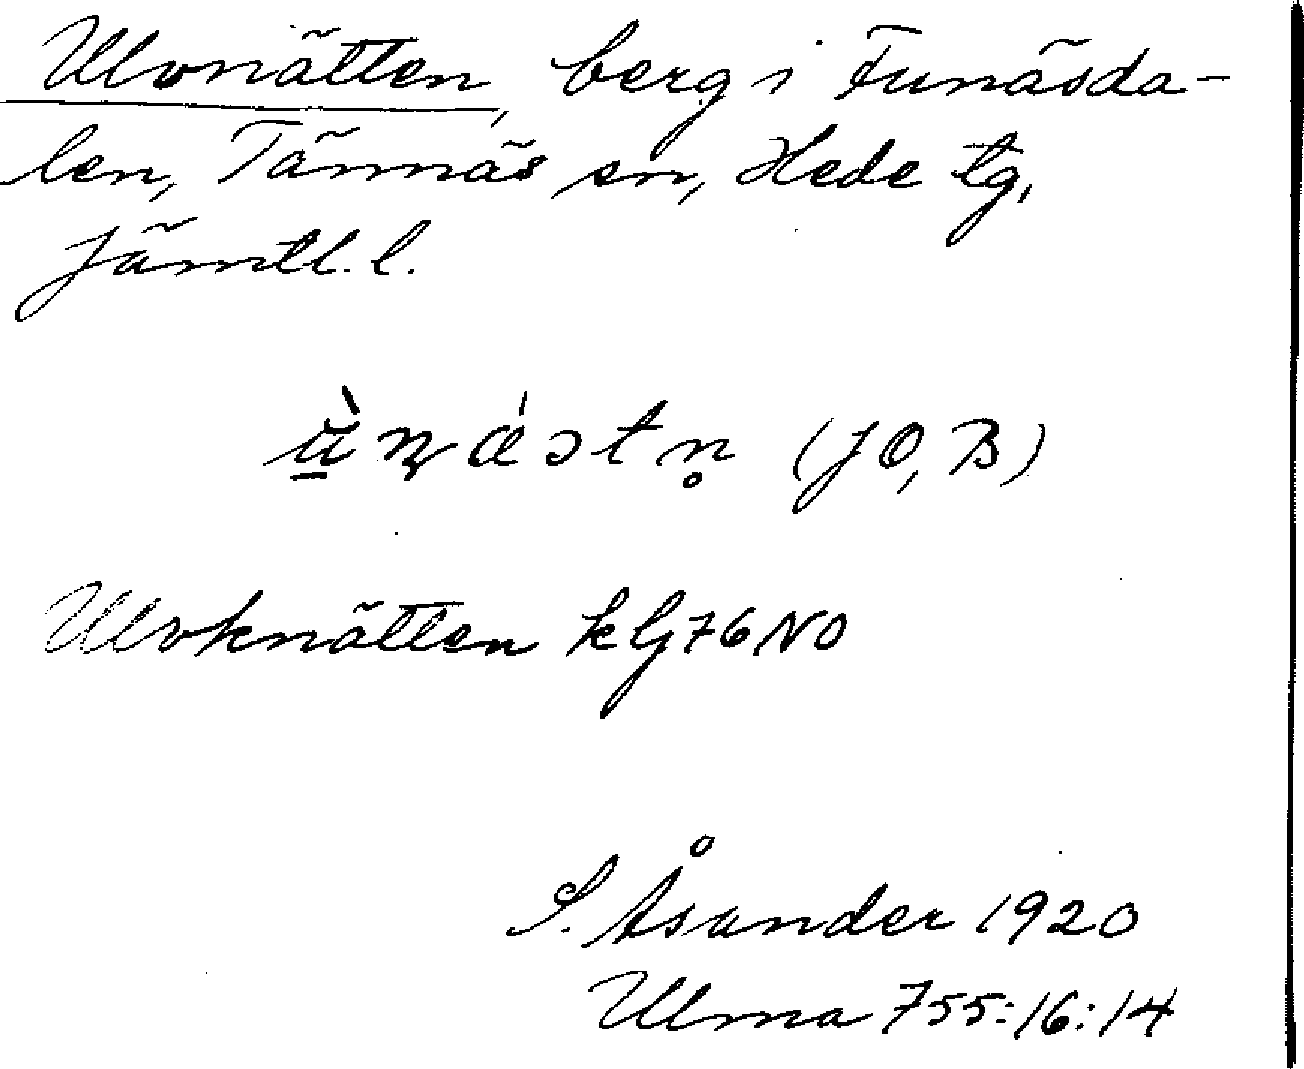 Ulvnätten, berg i Funäsda-
len, Tännäs sn, Hede tg,
Jämtl. l.
(JO, B)
Ulvknätten klj 76 NO
S. Åsander 1920
Ulma 755:16:14